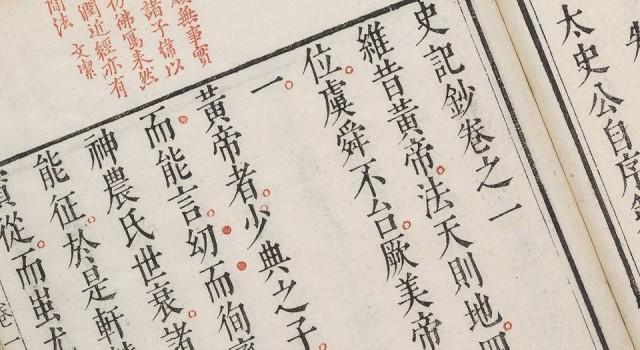 太史公自序
史記鈔卷之一
維昔黃帝法天則地四
位虞舜不台厥美帝
一
黃帝者少典之子
而能言幼而徇
神農氏世衰諸
能征於是軒
從而蚩尤
卷一
無事實
諸子偉以
彷彿寫未然
潤近經亦有
法